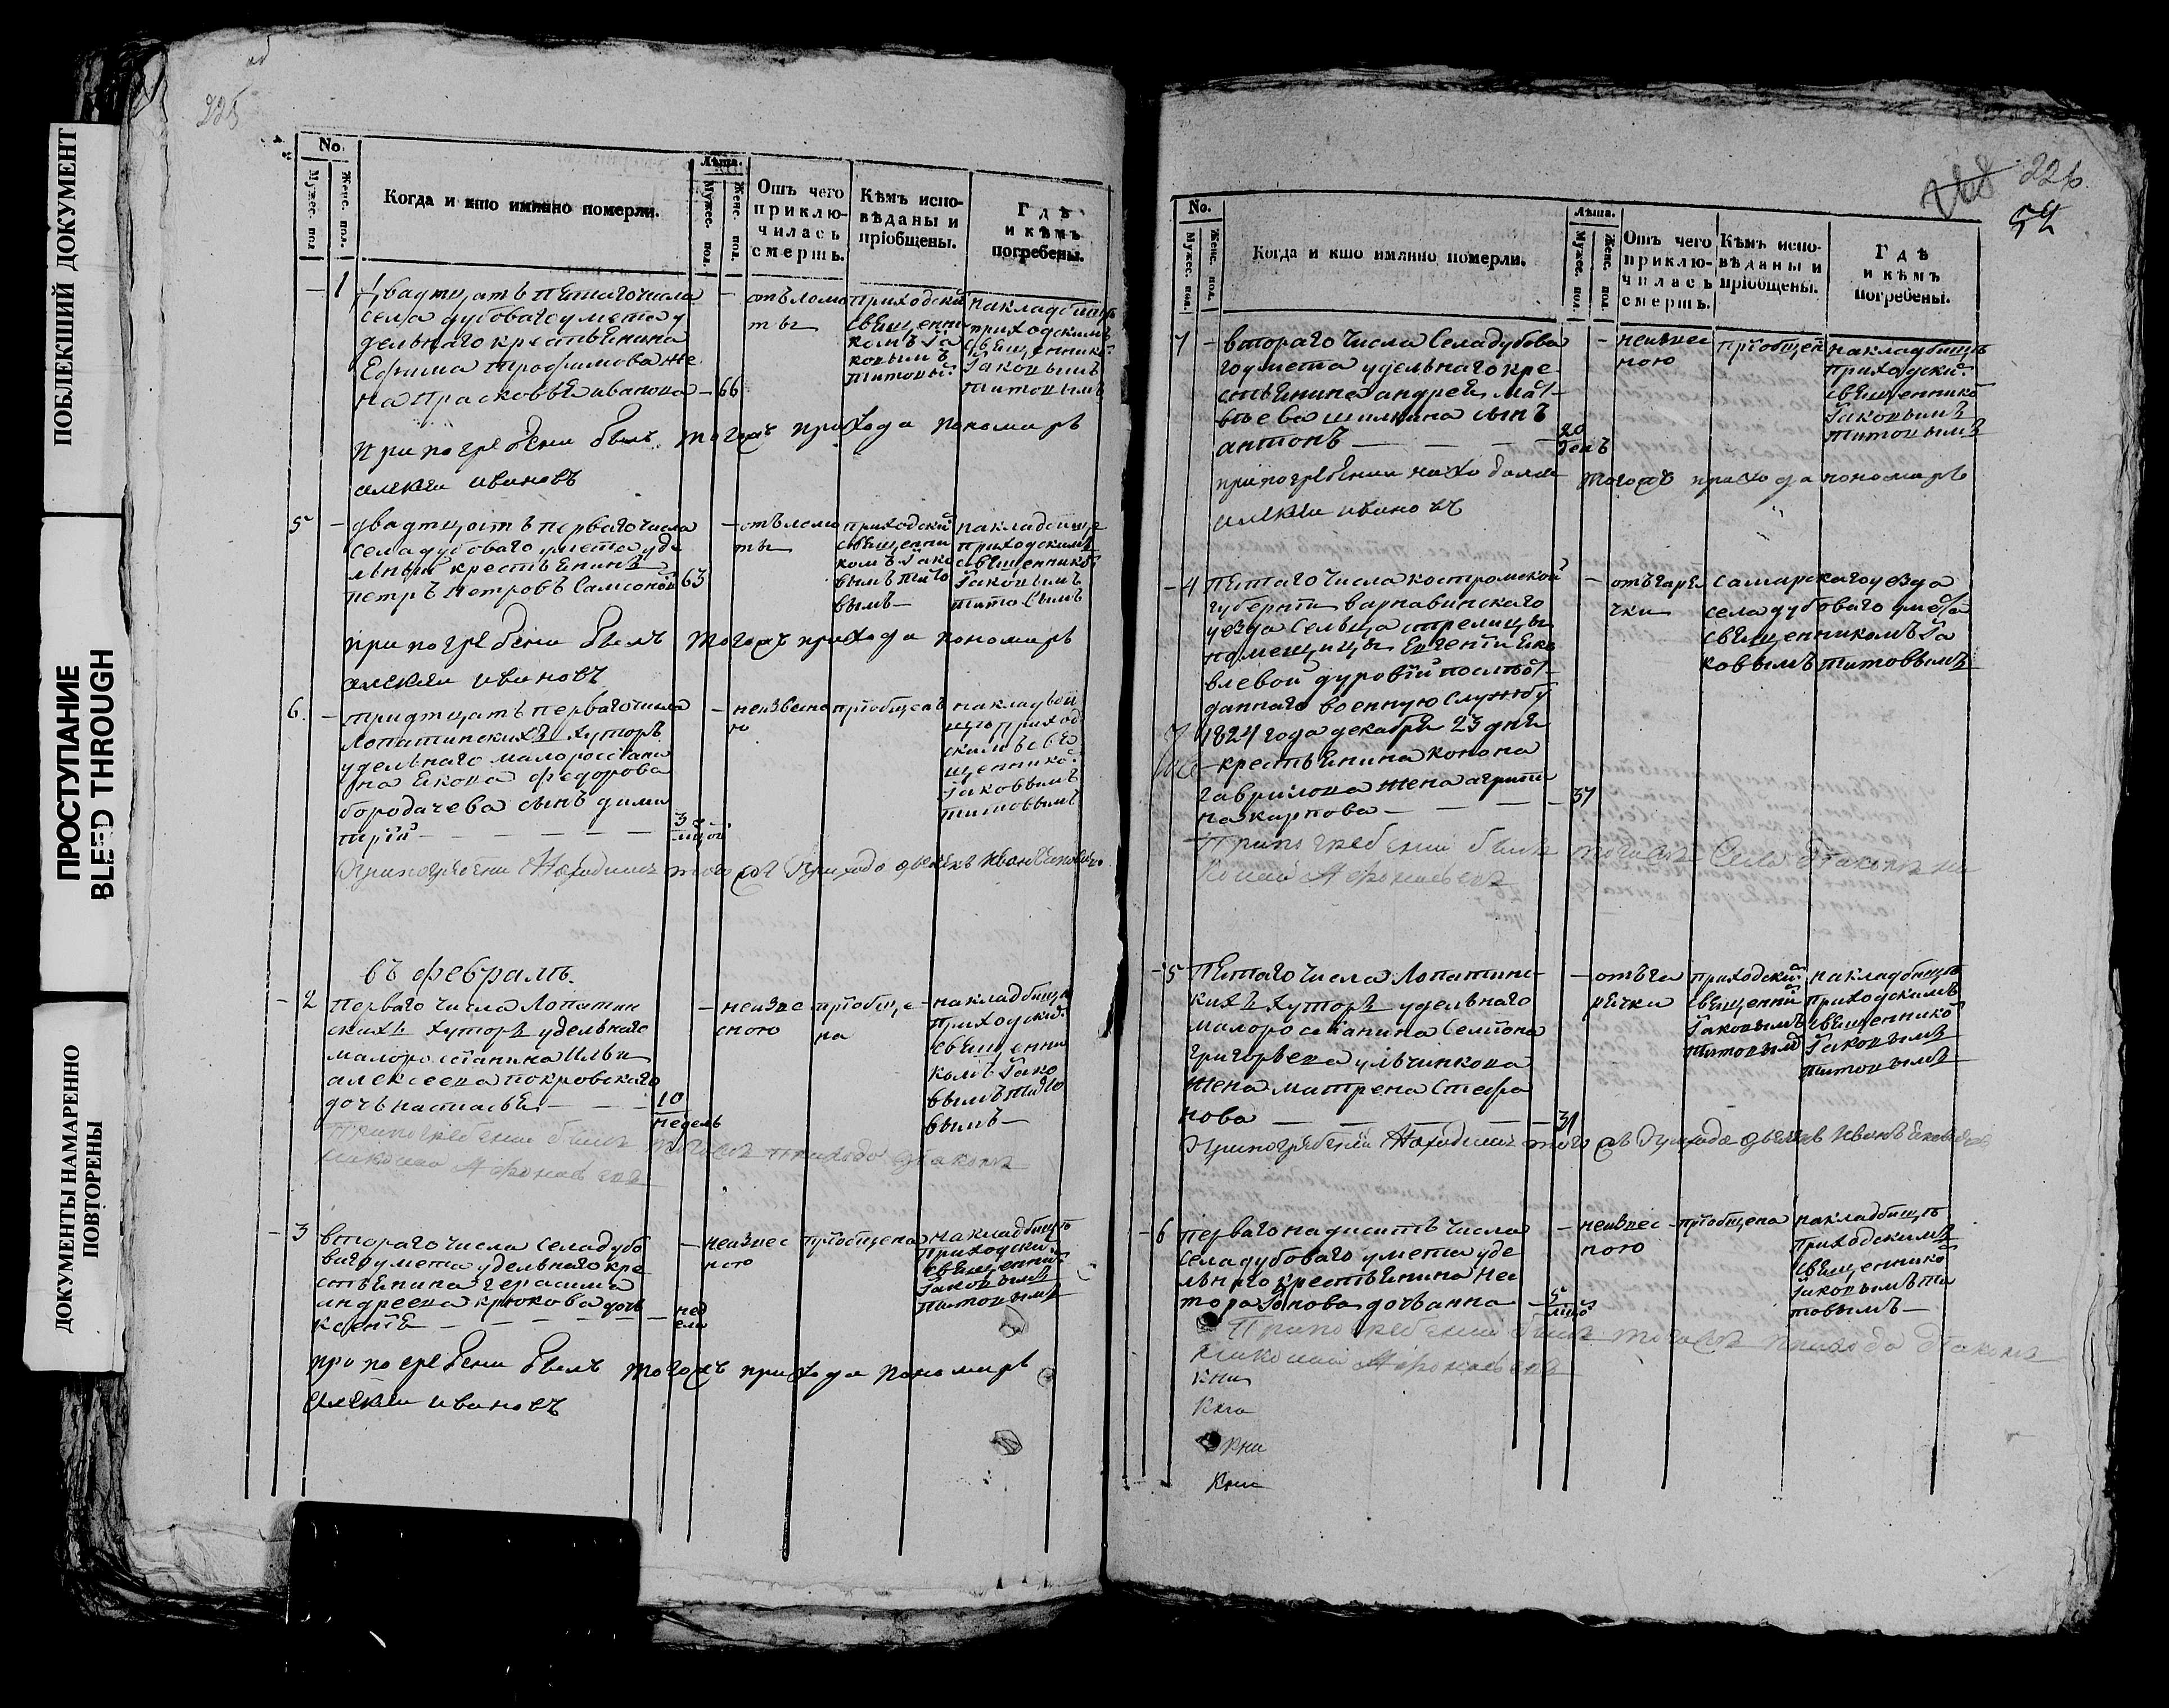 ПОБЛЕКШИЙ ДОКУМЕНТ
ПРОСТУПАНИЕ
BLEED THROUGH
ДОКУМЕНТЫ НАМАРЕННО
ПОВТОРЕНЫ
225
No.
Мужес. пол.
Женс. пол.
Когда и кто имянно померли.
Лѣта.
Мужес. пол.
Женс. пол.
Отъ чего
приклю-
чилась
смерть.
Кѣмъ испо-
вѣданы и
пріобщены.
Гдѣ
и кѣмъ
погребены.
1
дватцать пятаго числа
села дубоваго умета у
дельнаго крестьянина
Ефима трофимова же
на прасковья иванова
66
отъ ломо
ты
приходски
священни
комъ Іа
ковымъ
титовы
на кладбищѣ
приходскимъ
священнико
Іаковымъ
титовымъ
при погребени былъ тогожъ прихода пономарь
алекѣи ивановъ
5
дватцать перваго числа
села дубоваго умета уде
льный крестьянинъ
петръ петровъ Самсонов
63
отъ ломо
ты
приходски
священни
комъ Іако
вымъ тито
вымъ
на кладбище
приходскимъ
священнико
Іаковымъ
титовымъ
при погребени былъ тогожъ прихода пономарь
алекѣи ивановъ
6.
тритцать перваго числа
Лопатинскихъ хуторъ
удельнаго малороссіани
на якова федорова
бородачева сынъ дими
трій
3
неизвесно
ю
пріобщенъ
на кладби
щѣ приход
скимъ свя
щеннико
Іаковымъ
титовымъ
При погребени Находился тогожъ Прихода дьячекъ Иванъ
въ февралѣ.
2
перваго числа Лопатин
скихъ хуторъ удельнаго
малоросіанина Ильи
алексеева покровскаго
дочь настасья
10
недель
неизве
сною
пріобще
на
на кладбищѣ
приходски
священни
комъ Іако
вымъ тито
вымъ
При погребении былъ тогожъ прихода дьяконъ
николаи Афонасьевъ
3
втораго числа села дубо
ваго умета удельнаго кре
стьянина герасима
андреева крюкова дочь
ксенія
нед
ели
неизвес
ною
пріобщена
на кладбищѣ
приходски
священни
Іаковымъ
титовымъ
при погребени былъ тогожъ прихода пономарь
алекѣи ивановъ
226.
No.
Мужес. пол.
Женс. пол.
Когда и кто имянно померли.
Лѣта.
Мужес. пол.
Женс. пол.
Отъ чего
приклю-
чилась
смерть.
Кѣмъ испо-
вѣданы и
пріобщены.
Гдѣ
и кѣмъ
погребены.
7
втораго числа Села дубова
го умета удельнаго кре
стьянина андрея мат-
вѣева шилкина сынъ
антонъ
20
денъ
неизвес
ною
пріобщен
на кладбищѣ
приходски
священнико
Іаковымъ
титовымъ
при погребении находился тогожъ прихода пономарь
алекѣи ивановъ
4
Пятаго числа костромской
губерніи варнавинскаго
уезда Сельца стрелицы
помещицы Евгеніи яко
влевой дуровой послѣ от-
даннаго в военную службу
1824 года декабря 23 дня
крестьянина конона
гаврилова жена агрипи
на карпова
37
отъ горя
чки
самарскаго уезда
села дубоваго умета
священникомъ Іа
ковымъ титовымъ
При погребении былъ тогожъ Села дьяконъ ни
колаи Афонасьевъ
5
Пятаго числа Лопатинс-
кихъ хуторъ удельнаго
малоросіанина Семіона
григорьева ульчинкова
жена матрена Стефа
нова
31
отъ го
рячки
приходски
священни
Іаковымъ
титовым
на кладбищѣ
приходскимъ
священнико
Іаковымъ
титовымъ
При погребении Находился тогожъ Прихода дьячекъ Иванъ
6
перваго на десять числа
села дубоваго умета уде
льнаго крестьянина нес
тора дочь анна
5
неизвес
ною
пріобщена
на кладбищѣ
приходскимъ
священнико
Іаковымъ ти
товымъ
При погребении былъ тогожъ прихода дьяконъ
николаи Афонасьевъ
Кни
Кни
Кни